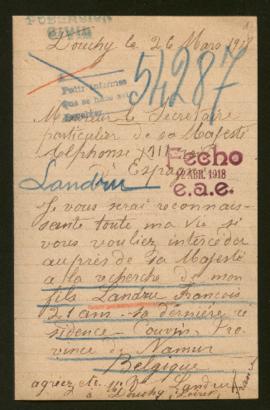 POBLACION
CIVIL
Douchy le 26 Mars 1918
54287
Pedir informes
Monsieur le Secrétaire
particulier de sa Majesté
Alphonse XIII
Espagne
Fecho
2 ABR. 1918
e.a.e.
Landru
Je vous serai reconnais-
sante toute ma vie si
vous vouliez intercéder
auprès de sa Majesté
a la recherche de mon
fils Landru François
21 ans. sa dernière ré
sidence. Couvin Pro
vince de Namur
Belgique
agréez etc. Landru
à Douchy Loiret
France